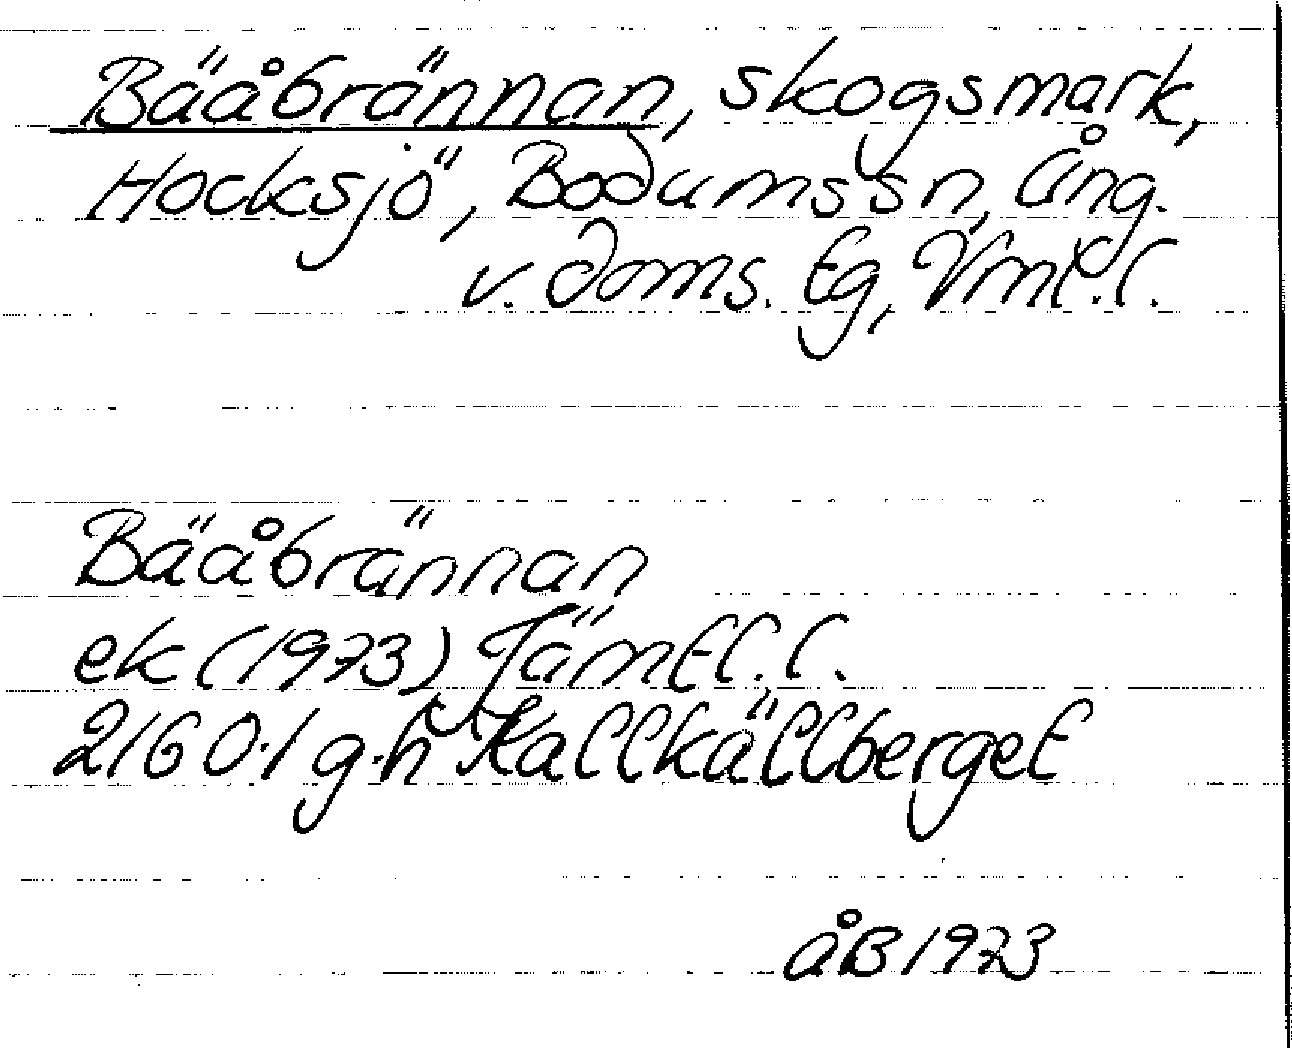 Bäåbrännan, skogsmark,
Hocksjö, Bodums sn, Ång.
v. doms. tg, Vrnl. l.
Bäåbrännan
ek (1973) Jämtl. l.
21601 g-h Kallkällberget
ÅB 1973